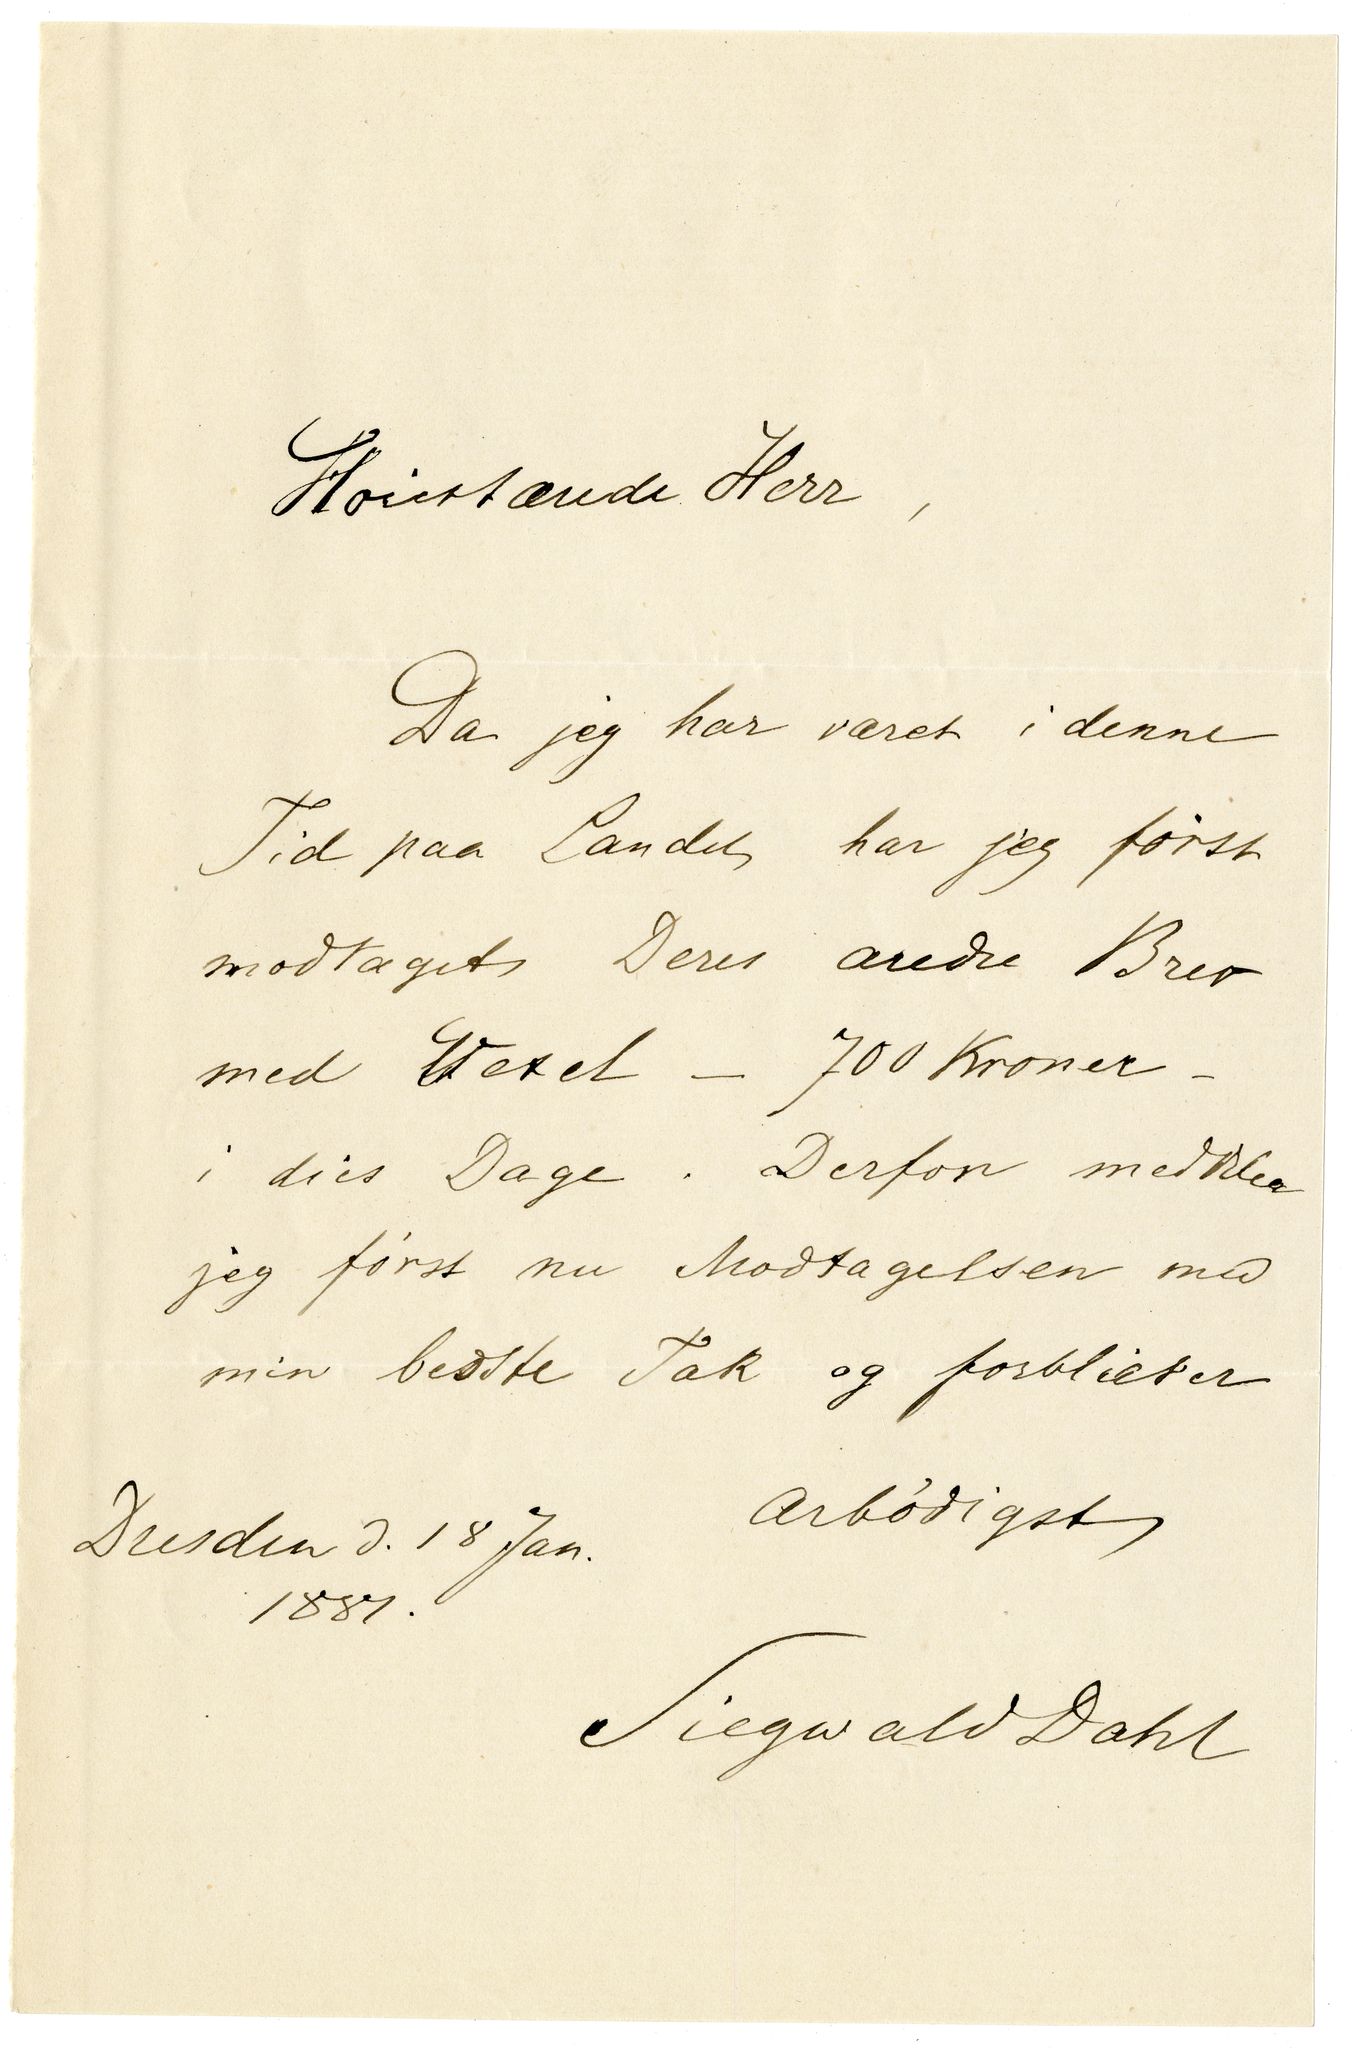 Höiestærede Herr,
Da jeg har været i denne
Tid paa Landet, har jeg först
modtaget Deres ærede Brev
med Vexel — 700 Kroner —
i dies Dage. Derfor meddeler
jeg först nu Modtagelsen med
min bedste Tak og forbliever
Arbödigst
Dresden d. 18 Jan.
1881.
Siegwald Dahl